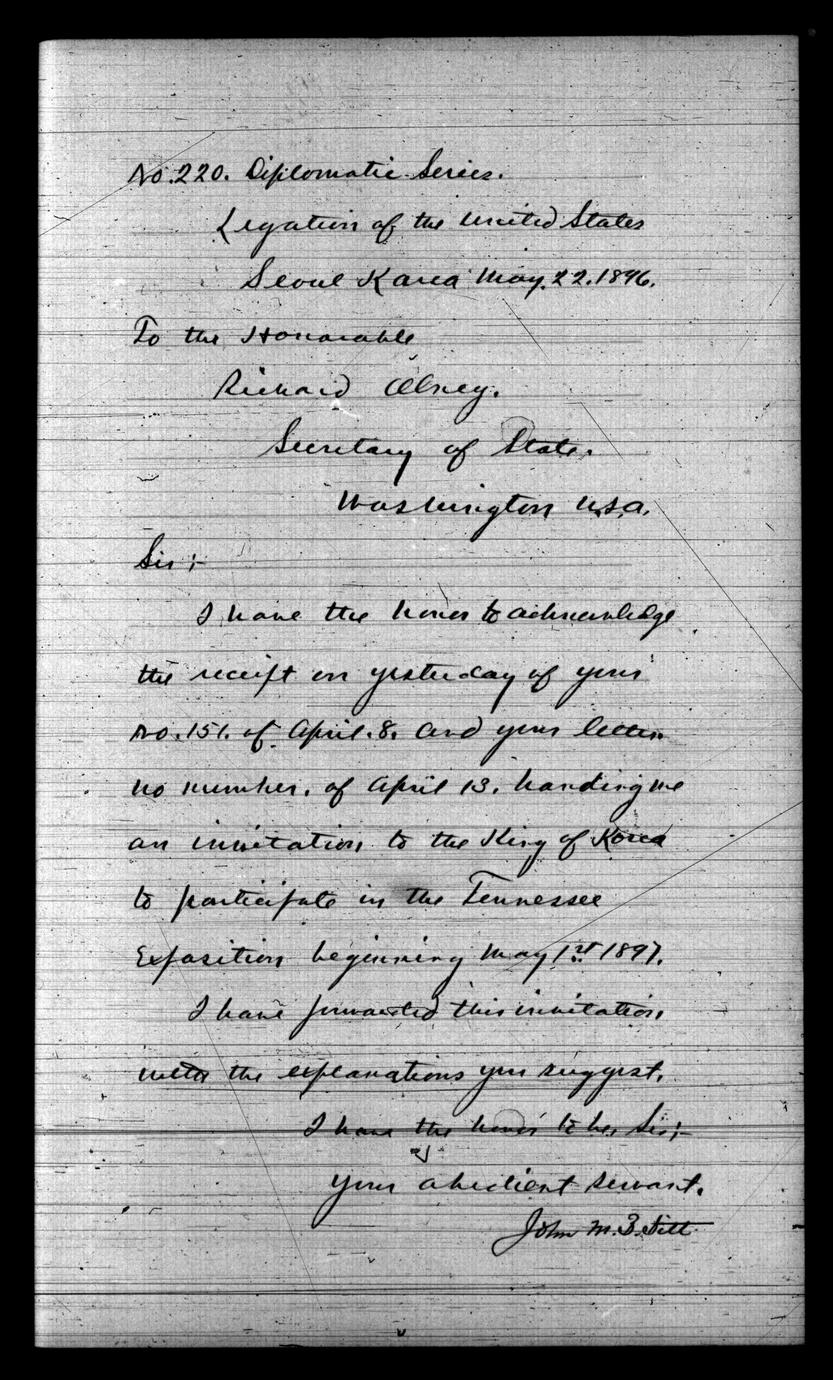 No. 220. Diplomatic Series.
Legation of the United States
Seoul Korea May. 22. 1896.
To the Honorable
Richard Olney.
Secretary of State.
Washington U.S.A.
Sir:-
I have the honor to acknowledge
the receipt on yesterday of your
No. 151. of April. 8. and your letter
no number. of April 13. handing me
an invitation to the King of Korea
to participate in the Tennessee
Exposition beginning May 1st 1897.
I have forwarded this invitation
with the explanations you suggest.
I have the honor to be, Sir;-
Your obedient servant.
John M. B. Sill